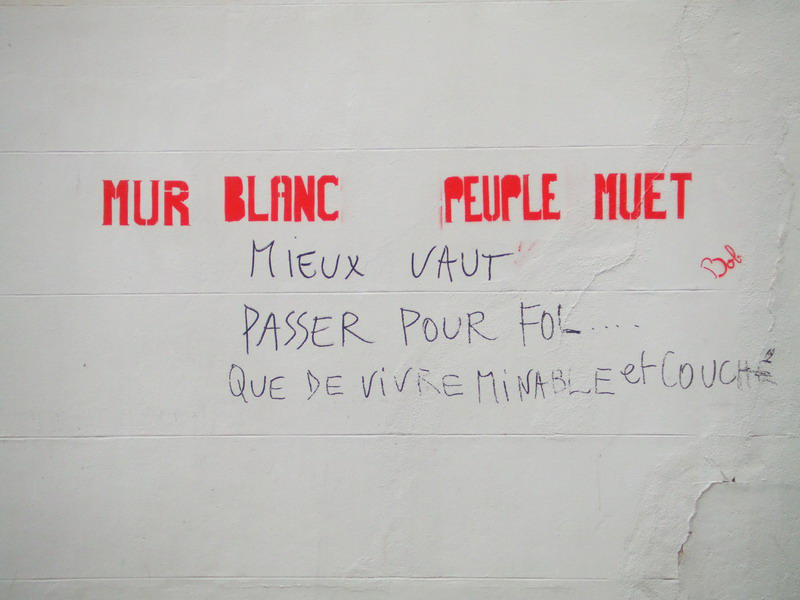 MUR BLANC PEUPLE MUET
MIEUX VAUT
Bob
PASSER POUR FOL....
QUE DE VIVRE MINABLE et COUCHÉ